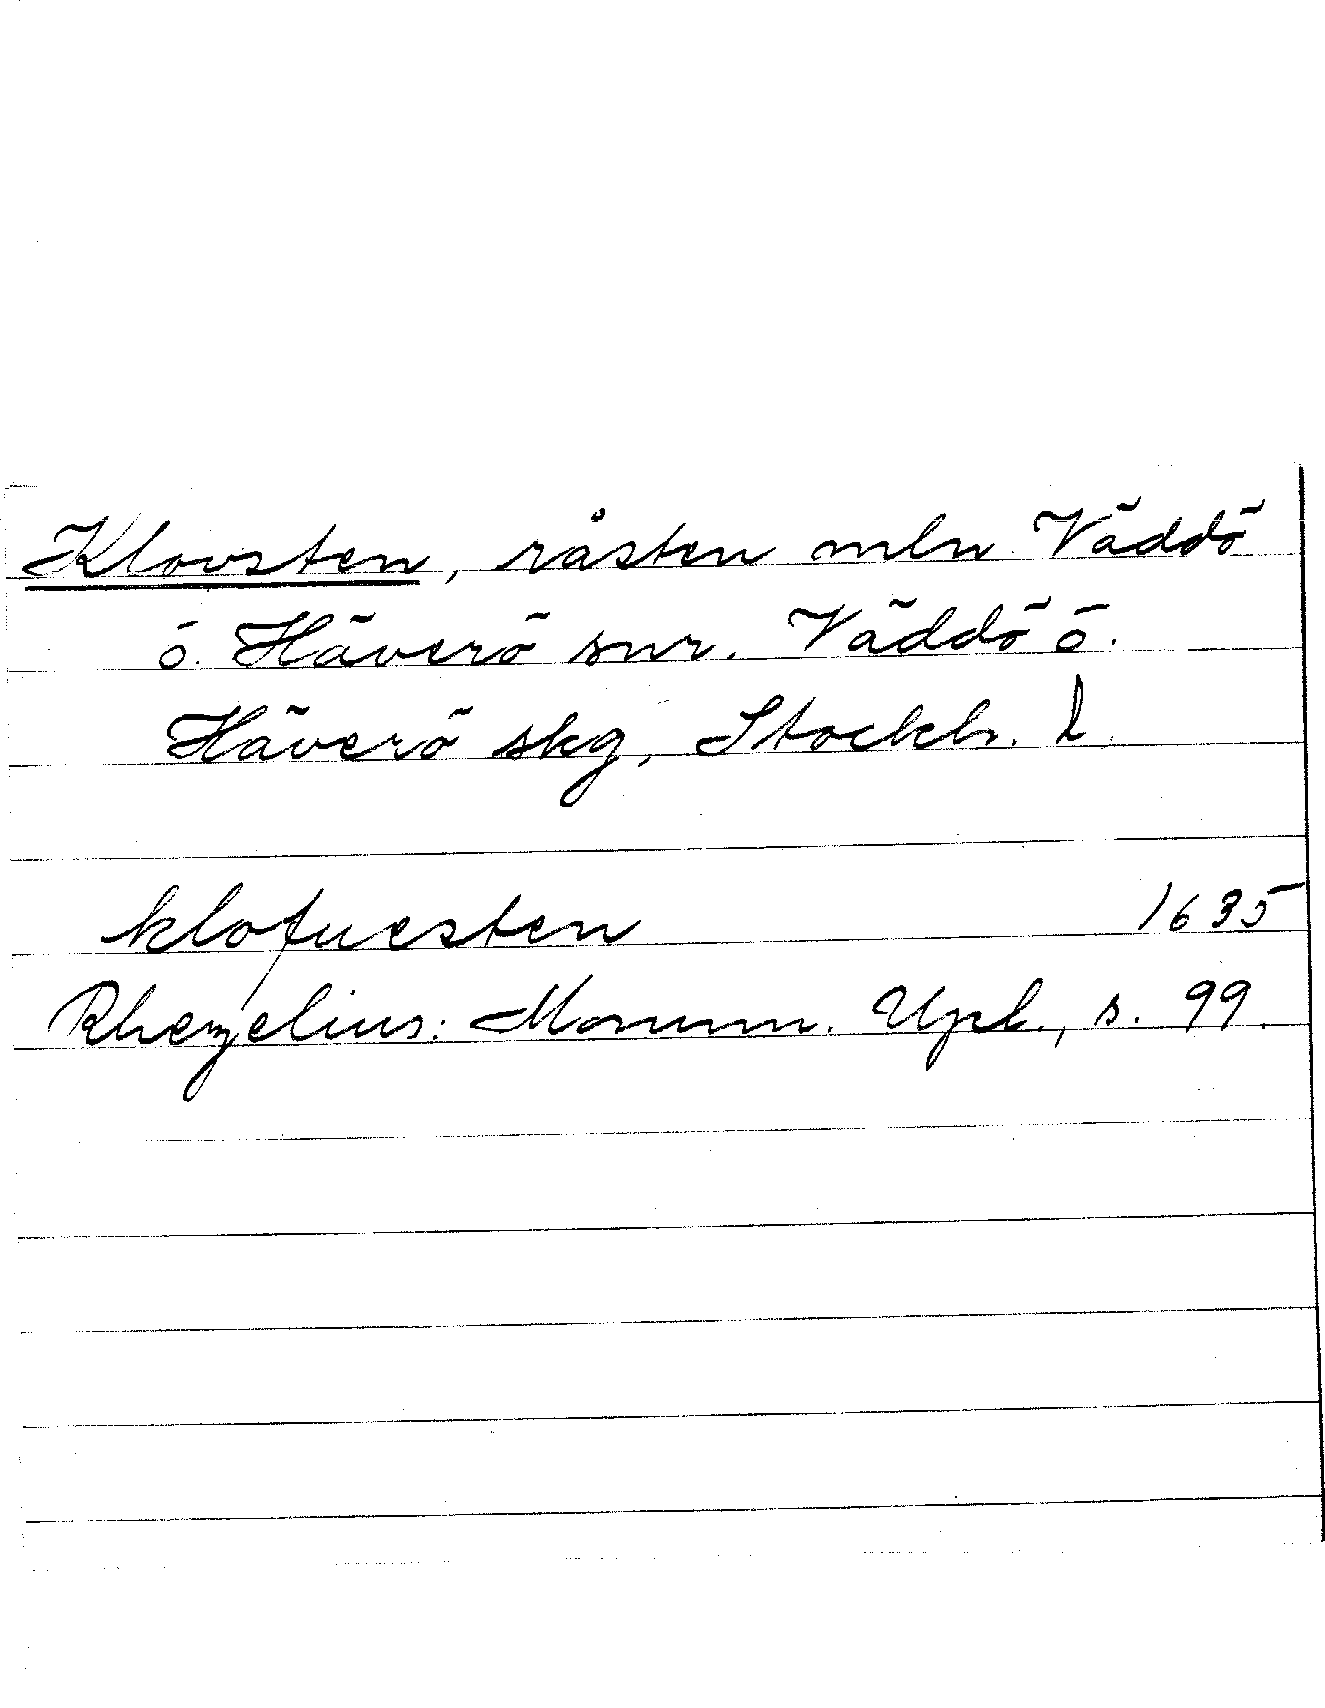 Klovsten, råsten mln Väddö
o. Häverö snr. Väddö o.
Häverö skg, Stockh. l
klofuesten 1635
Rhezelius: Monum. Upl., s. 99.